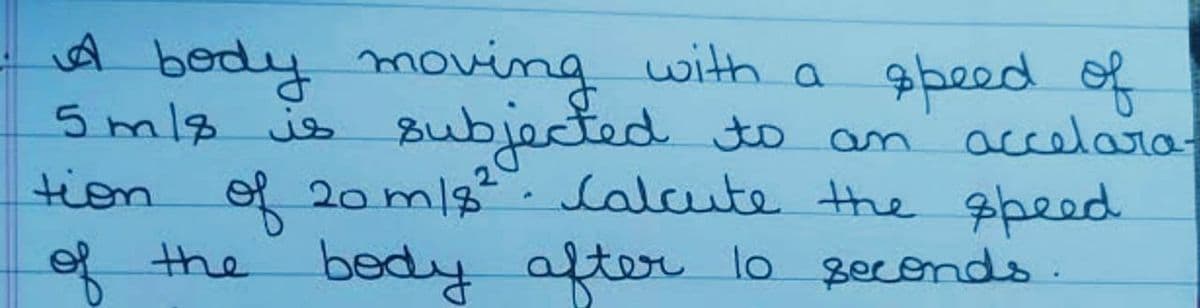 A body moving with a speed of
5 m/s is subjected to an accelara-
tion of 20 m/s². Calcute the speed
of the body after 10 seconds.